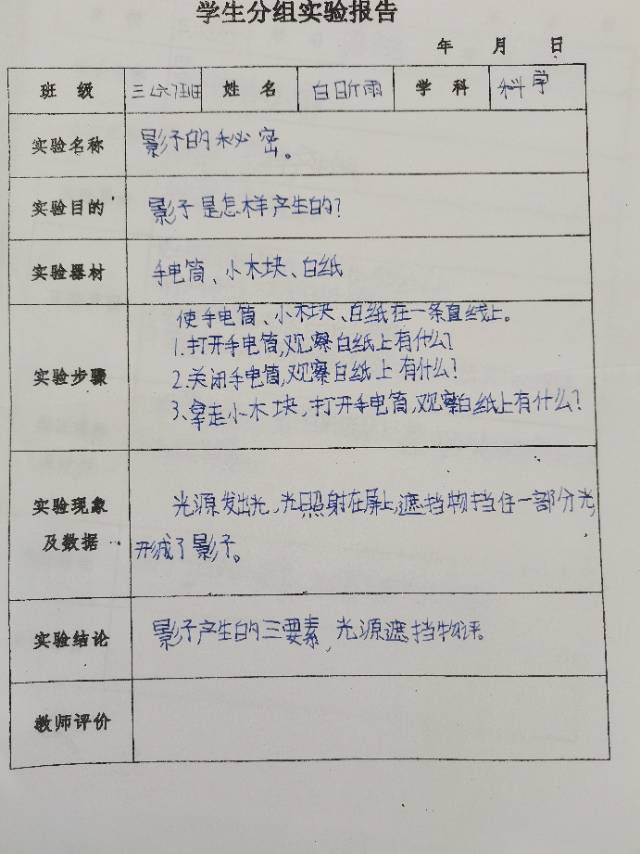 学生分组实验报告
年 月 日
班 级 三六班 姓 名 白昕雨 学 科 科学
实验名称 影子的秘密。
实验目的 影子是怎样产生的?
实验器材 手电筒、小木块、白纸
使手电筒、小木块、白纸在一条直线上。
1.打开手电筒,观察白纸上有什么?
实验步骤 2.关闭手电筒,观察白纸上有什么?
3.拿走小木块,打开手电筒,观察白纸上有什么?
实验现象 光源发出光,光照射在屏上,遮挡物挡住一部分光,
及数据 形成了影子。
实验结论 影子产生的三要素,光源遮挡物屏。
教师评价